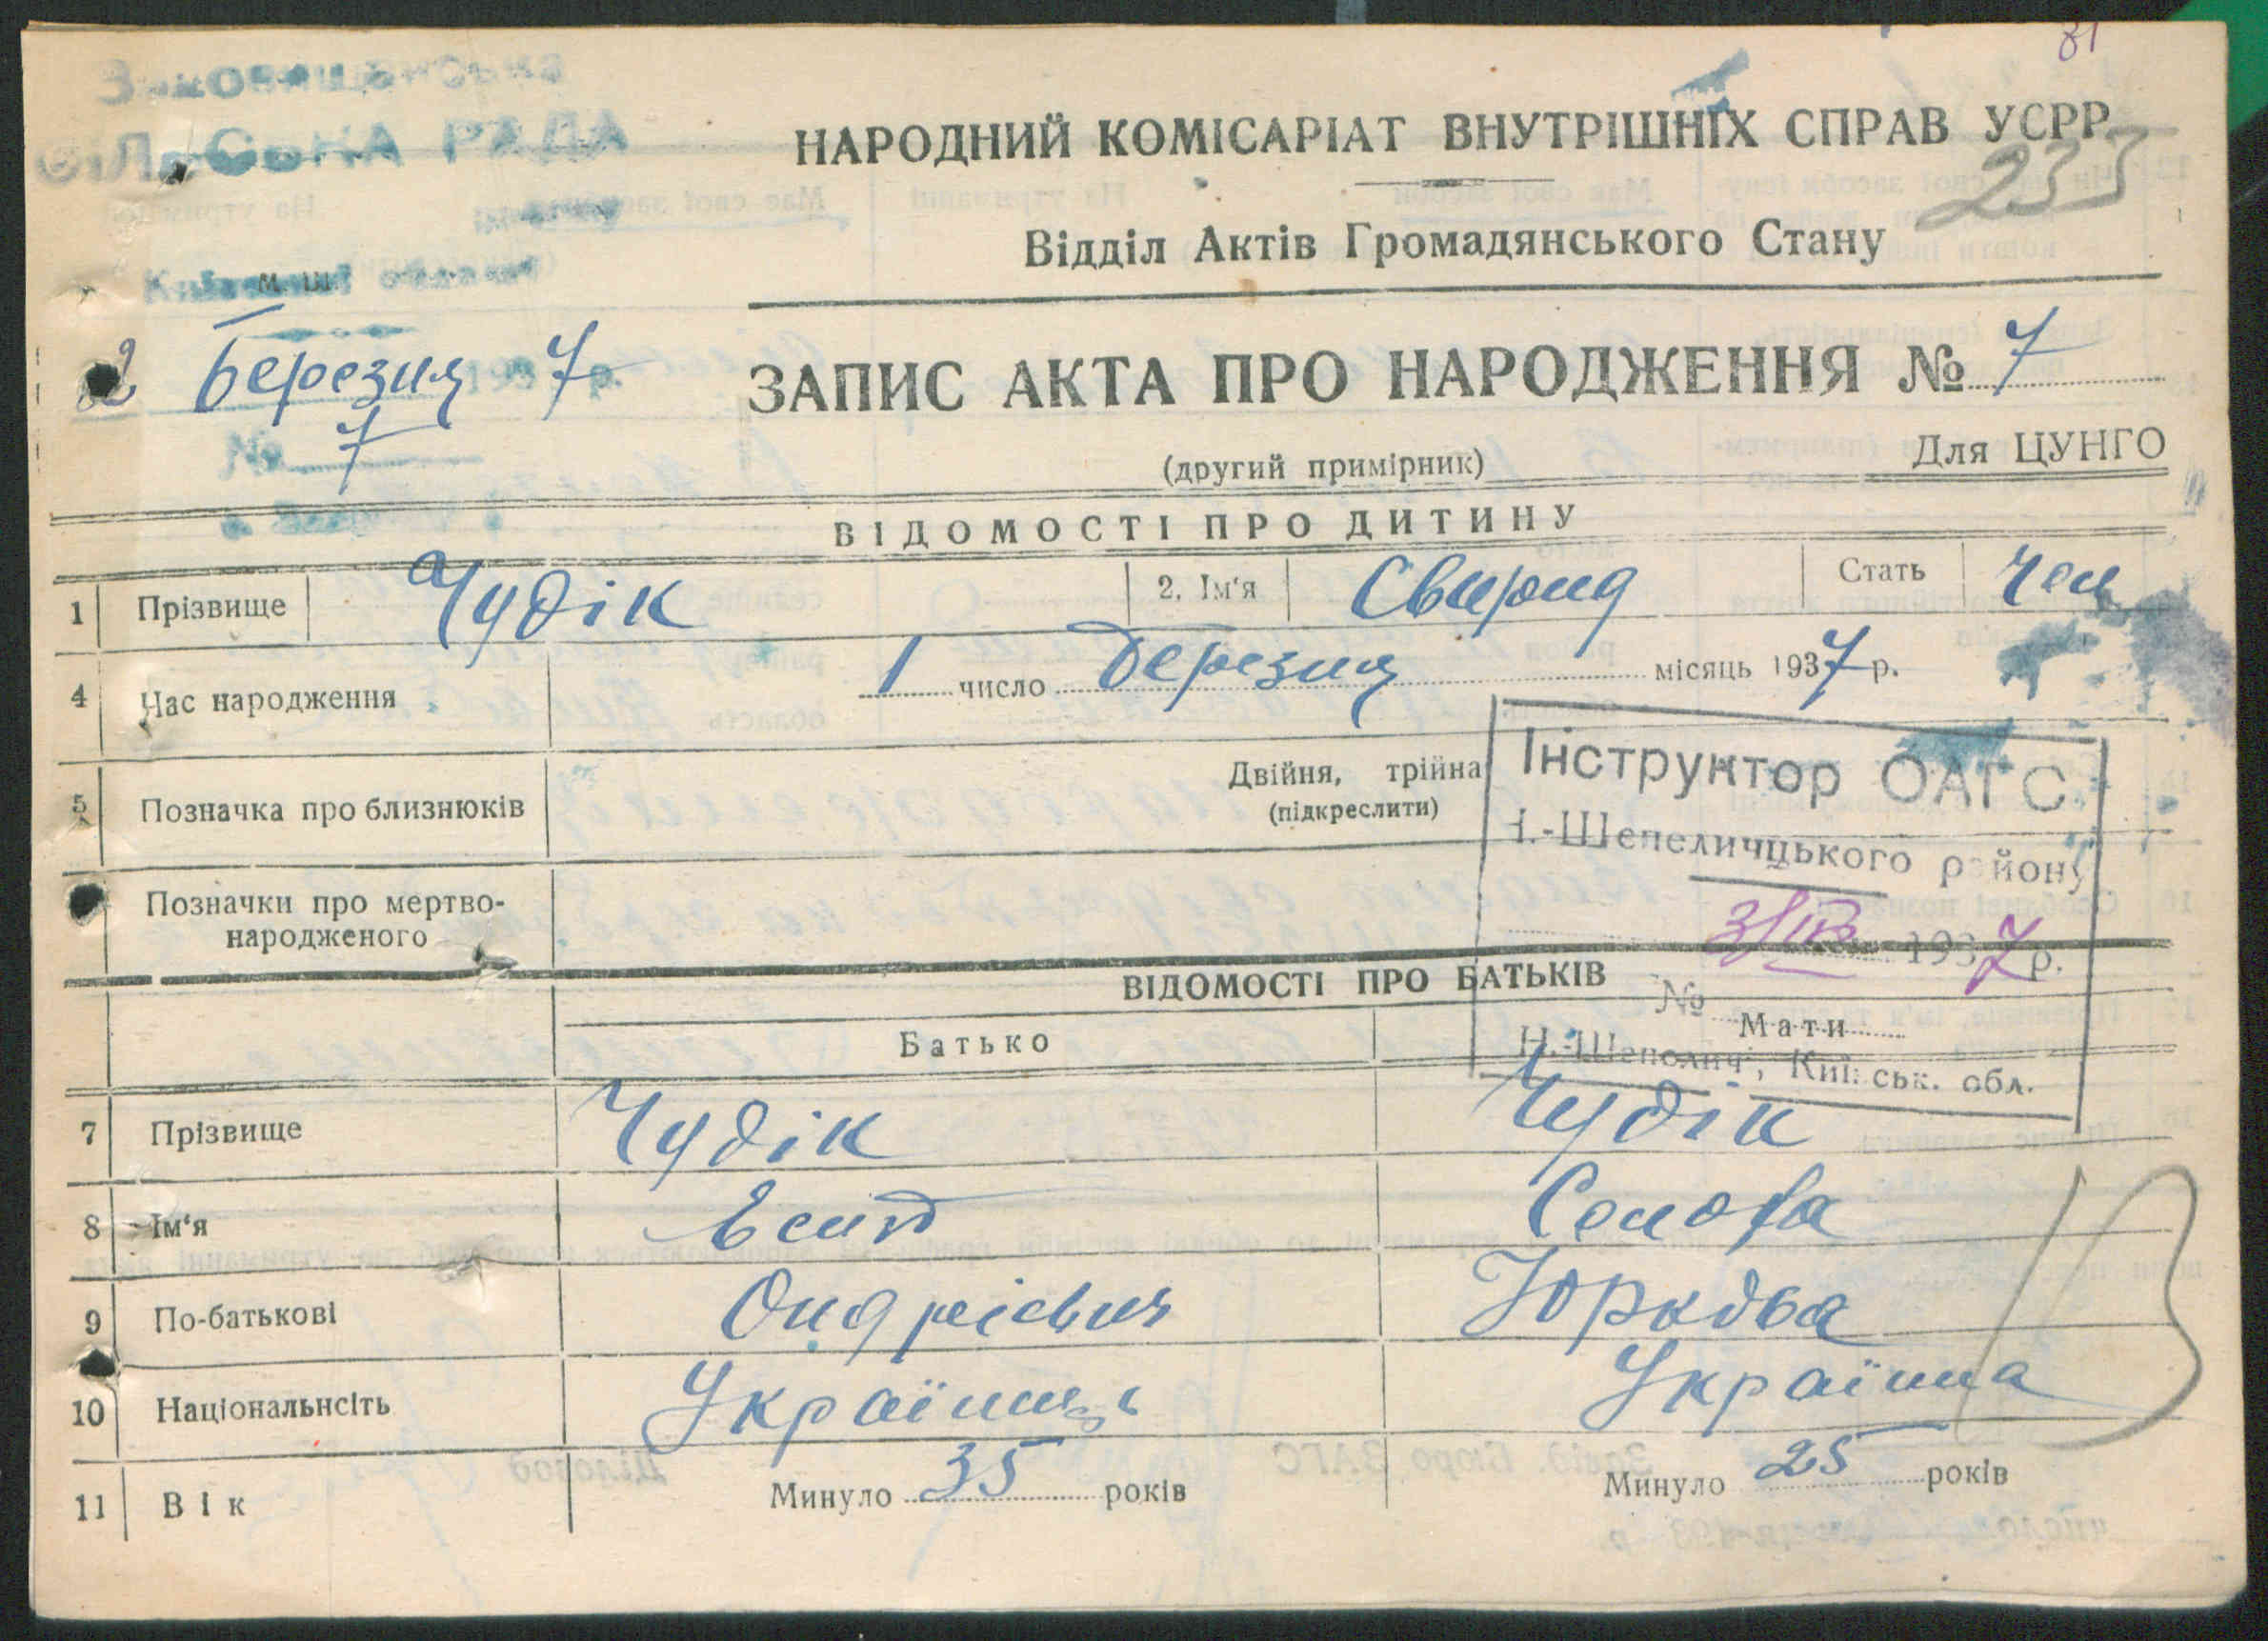 81
СІЛЬСЬКА РАДА
Київської області
НАРОДНИЙ КОМІСАРІАТ ВНУТРІШНІХ СПРАВ УСРР
Відділ Актів Громадянського Стану
2 березня 1937 р.
№ 7
ЗАПИС АКТА ПРО НАРОДЖЕННЯ № 7
(другий примірник)
Для ЦУНГО
ВІДОМОСТІ ПРО ДИТИНУ
1 Прізвище Чудік 2. Ім'я Свирид Стать чол
4 Час народження 1 число березня місяць 1937 р.
5 Позначка про близнюків Двійня, трійна
(підкреслити)
Позначки про мертво-
народженого
Інструктор ОАГС
Н.-Шепеличцького району
1937 р.
№
Н.-Шепелич, Київськ. обл.
ВІДОМОСТІ ПРО БАТЬКІВ
Батько Мати
7 Прізвище Чудік Чудік
8 Ім'я
9 По-батькові Ондрієвич Юркова
10 Національнсіть Українець Українка
11 Вік Минуло 35 років Минуло 25 років